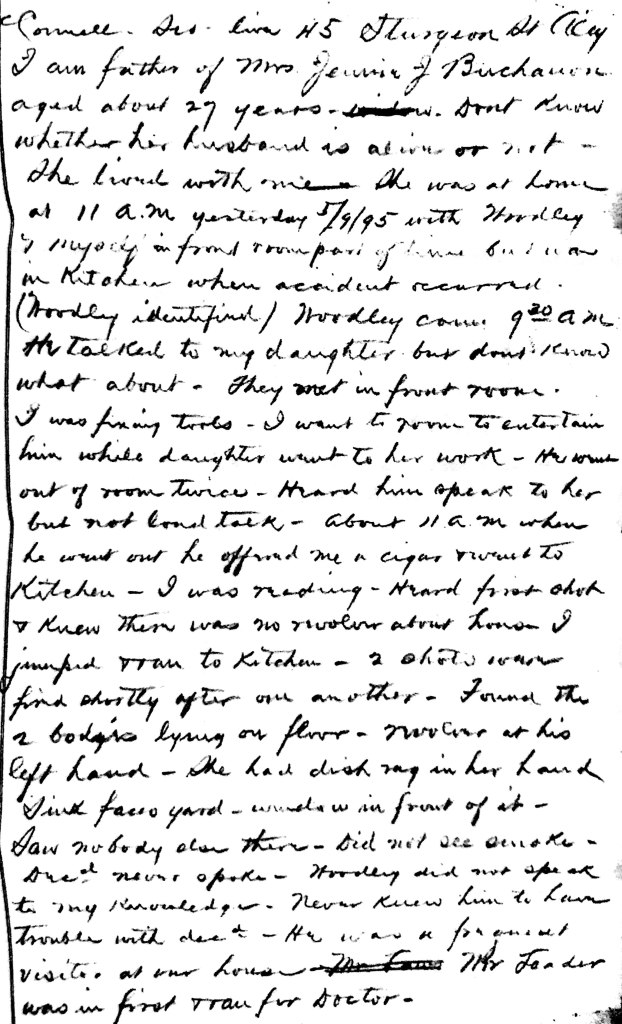 Connell. Geo. live 45 Sturgeon St City
I am father of Mrs Jennie J Buchanon
aged about 27 years - widow. Dont Know
whether her husband is alive or not -
She lived with me - She was at home
at 11 A.M yesterday 5/9/95 with Woodley
& Myself in front room part of time but was
in Kitchen when accident occurred.
(Woodley identified) Woodley came 9 30 A M
He talked to my daughter but dont Know
what about - They met in front room.
I was fixing tools - I went to room to entertain
him while daughter went to her work - He went
out of room twice - Heard him speak to her
but not loud talk - About 11 A.M when
he went out he offered me a cigar & went to
Kitchen - I was reading - Heard first shot
& Knew there was no revolver about house I
jumped & ran to Kitchen - 2 shots were
fired shortly after one another - Found the
2 bodys lying on floor - revolver at his
left hand - She had dish rag in her hand
Sink faces yard - window in front of it -
Saw nobody else there - Did not see smoke -
Decd never spoke - Woodley did not speak
to my Knowledge - Never Knew him to have
trouble with decd - He was a frequent
visitor at our house Mr Leader
was in first & ran for Doctor -